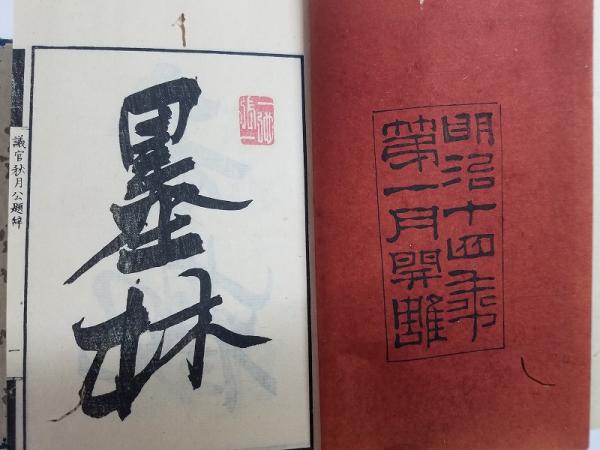 明治十四年
第一月開雕
墨林
議官秋月公題辞
一